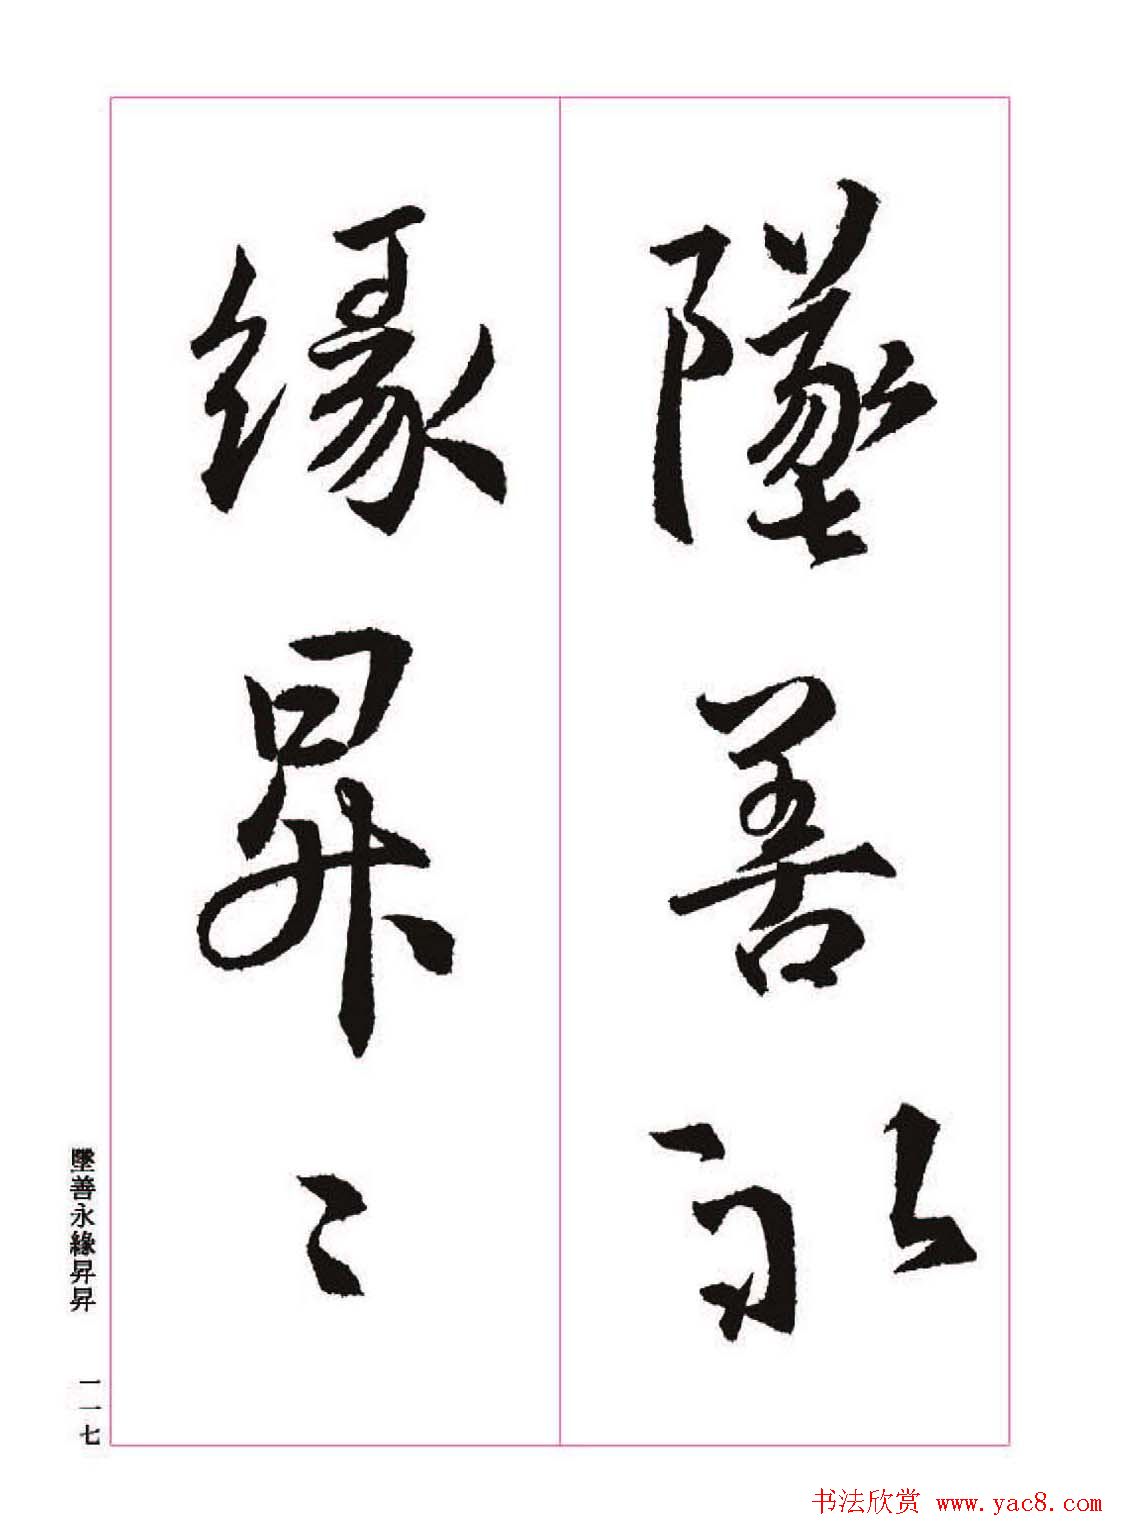 墜善永
緣昇〻
墜善永緣昇昇
一一七
书法欣赏 www.yac8.com